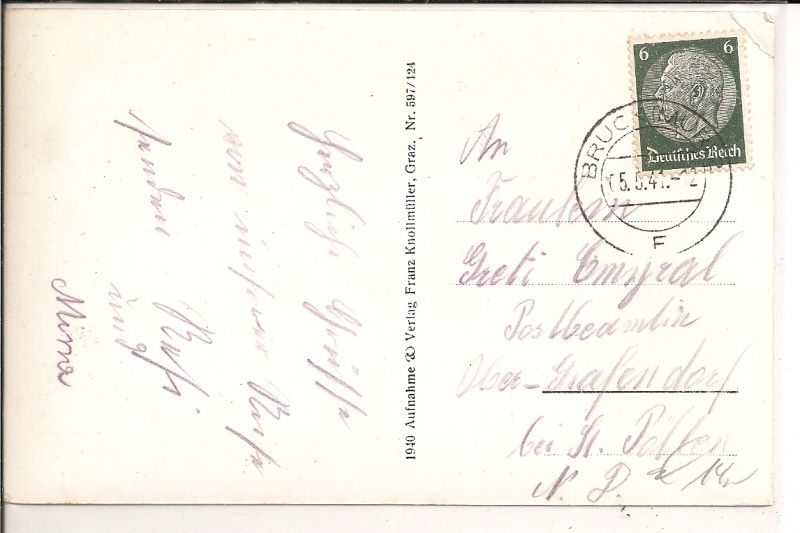 Herzliche Grüsse
von unserer Rast
senden
Resi
und
Minna
1940 Aufnahme Verlag Franz Knollmüller, Graz, Nr. 597/124
6 6
Deutsches Reich
BRUCK
5.5.41.-12
F
An
Fräulein
Greti
Postbeamtin
Ober-Grafendorf
bei St. Pölten
N. D.
14